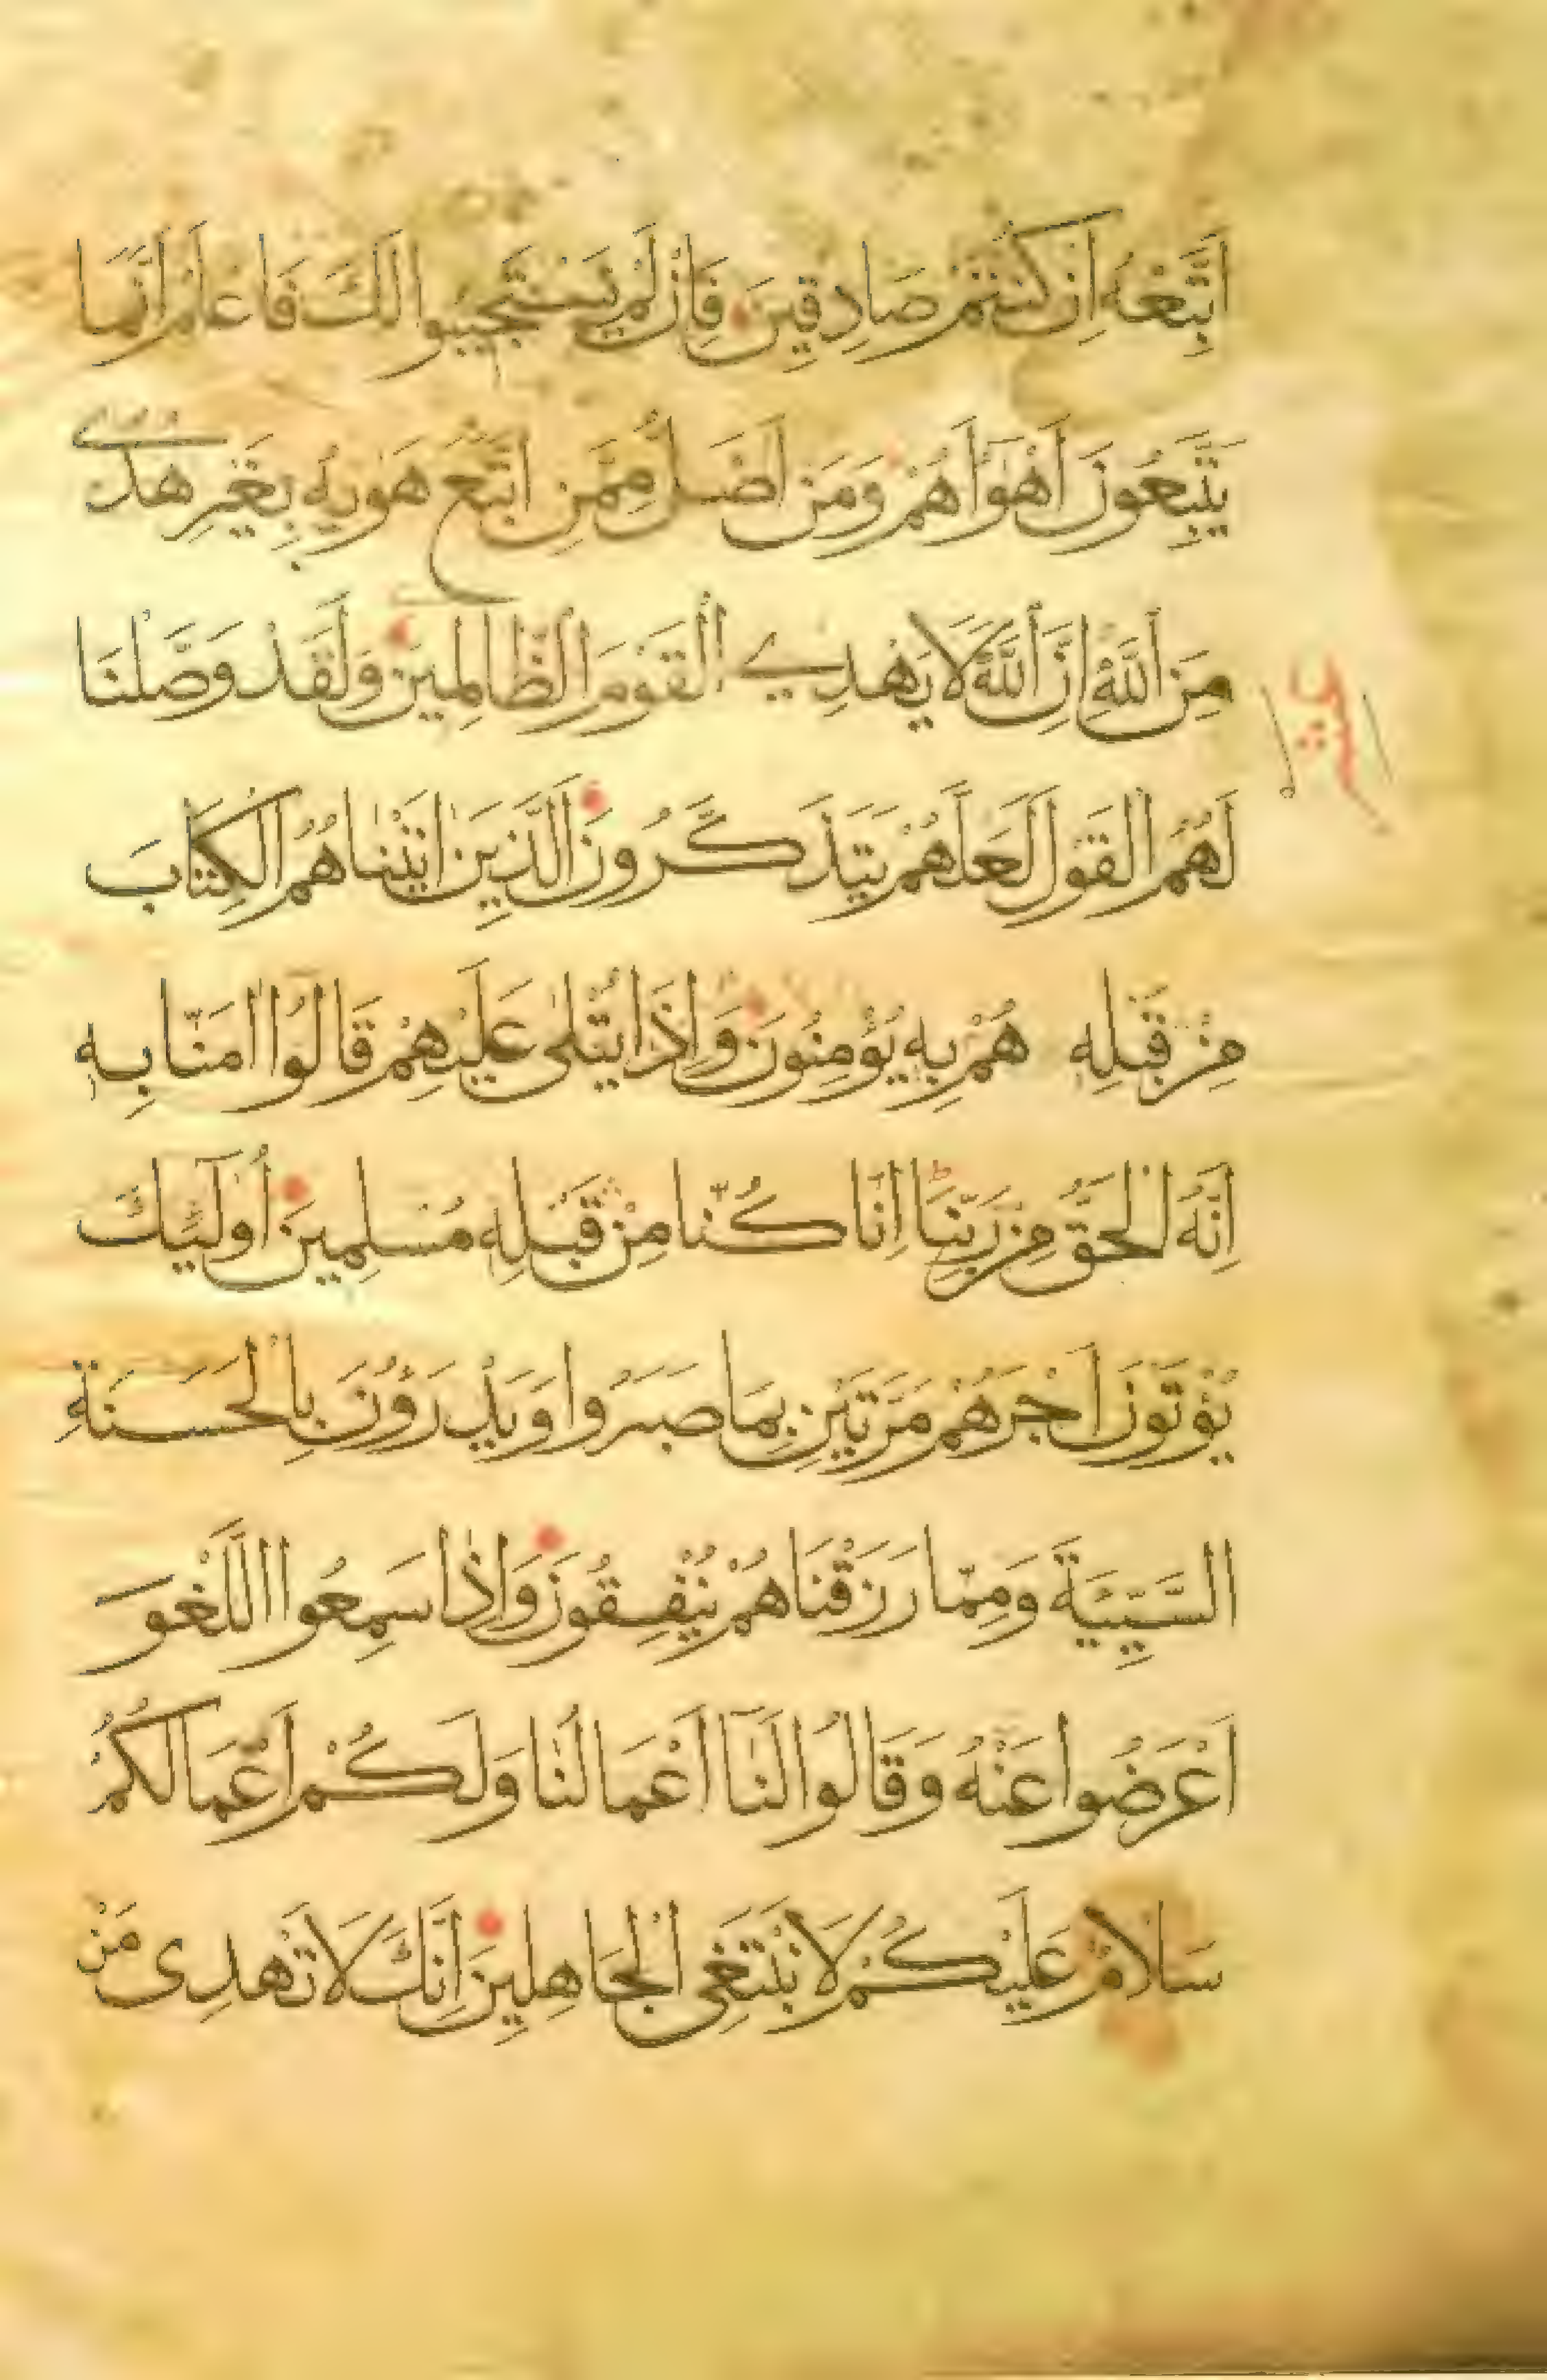 اَتَّبِعْهُ اِنْ كُنْتُمْ صَادِقِينَ فَاِنْ لَمْ يَسْتَجِيبُوا لَكَ فَاعْلَمْ اَنَّمَا
يَتَّبِعُونَ اَهْوَآءَهُمْ وَمَنْ اَضَلُّ مِمَّنِ اتَّبَعَ هَوٰيهُ بِغَيْرِ هُدًى
مِنَ اللّٰهِ اِنَّ اللّٰهَ لَا يَهْدِي الْقَوْمَ الظَّالِمِينَ وَلَقَدْ وَصَّلْنَا
لَهُمُ الْقَوْلَ لَعَلَّهُمْ يَتَذَكَّرُونَ اَلَّذِينَ اٰتَيْنَاهُمُ الْكِتَابَ
مِنْ قَبْلِهِ هُمْ بِهِ يُؤْمِنُونَ وَاِذَا يُتْلٰى عَلَيْهِمْ قَالُوا اٰمَنَّا بِهِ
اِنَّهُ الْحَقُّ مِنْ رَبِّنَا اِنَّا كُنَّا مِنْ قَبْلِهِ مُسْلِمِينَ اُولٰٓئِكَ
يُؤْتَوْنَ اَجْرَهُمْ مَرَّتَيْنِ بِمَا صَبَرُوا وَيَدْرَؤُنَ بِالْحَسَنَةِ
السَّيِّئَةَ وَمِمَّا رَزَقْنَاهُمْ يُنْفِقُونَ وَاِذَا سَمِعُوا اللَّغْوَ
اَعْرَضُوا عَنْهُ وَقَالُوا لَنَآ اَعْمَالُنَا وَلَكُمْ اَعْمَالُكُمْ
سَلَامٌ عَلَيْكُمْ لَا نَبْتَغِى الْجَاهِلِينَ اِنَّكَ لَا تَهْدِى مَنْ